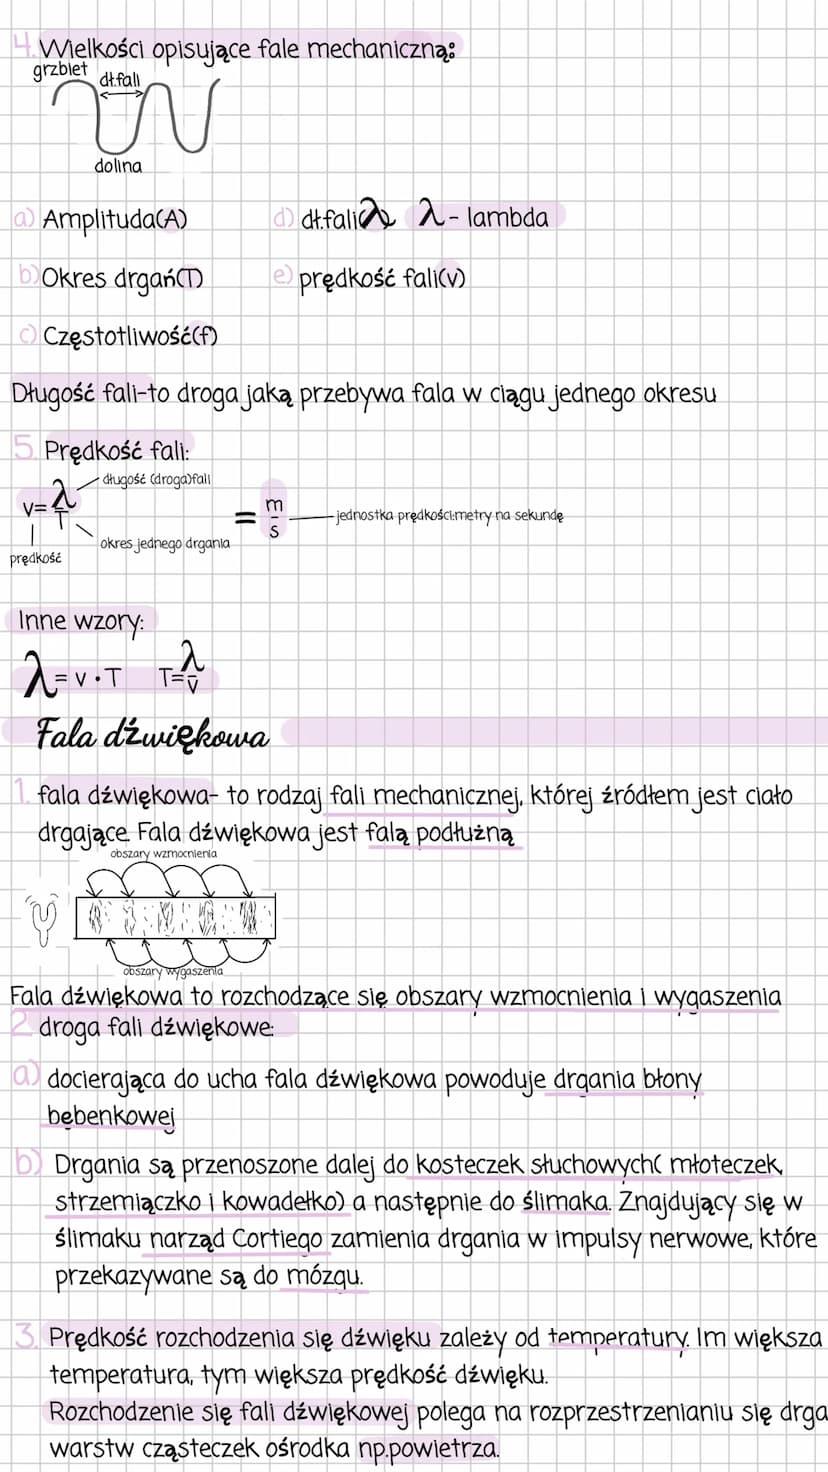 4. Wielkości opisujące fale mechaniczną:
grzbiet
dł.fali
dolina
a) Amplituda(A)
d) dł.fali(λ) λ - lambda
b) Okres drgań(T)
e) prędkość fali(v)
c) Częstotliwość(f)
Długość fali-to droga jaką przebywa fala w ciągu jednego okresu
5. Prędkość fali:
długość (droga)fali
v=λ/T
= m/s -jednostka prędkości:metry na sekundę
okres jednego drgania
prędkość
Inne wzory:
λ= v •T T=λ/v
Fala dźwiękowa
1. fala dźwiękowa- to rodzaj fali mechanicznej, której źródłem jest ciało
drgające. Fala dźwiękowa jest falą podłużną
obszary wzmocnienia
obszary wygaszenia
Fala dźwiękowa to rozchodzące się obszary wzmocnienia i wygaszenia
2. droga fali dźwiękowe:
a) docierająca do ucha fala dźwiękowa powoduje drgania błony
bębenkowej
b) Drgania są przenoszone dalej do kosteczek słuchowych( młoteczek,
strzemiączko i kowadełko) a następnie do ślimaka. Znajdujący się w
ślimaku narząd Cortiego zamienia drgania w impulsy nerwowe, które
przekazywane są do mózgu.
3. Prędkość rozchodzenia się dźwięku zależy od temperatury. Im większa
temperatura, tym większa prędkość dźwięku.
Rozchodzenie się fali dźwiękowej polega na rozprzestrzenianiu się drga
warstw cząsteczek ośrodka np.powietrza.